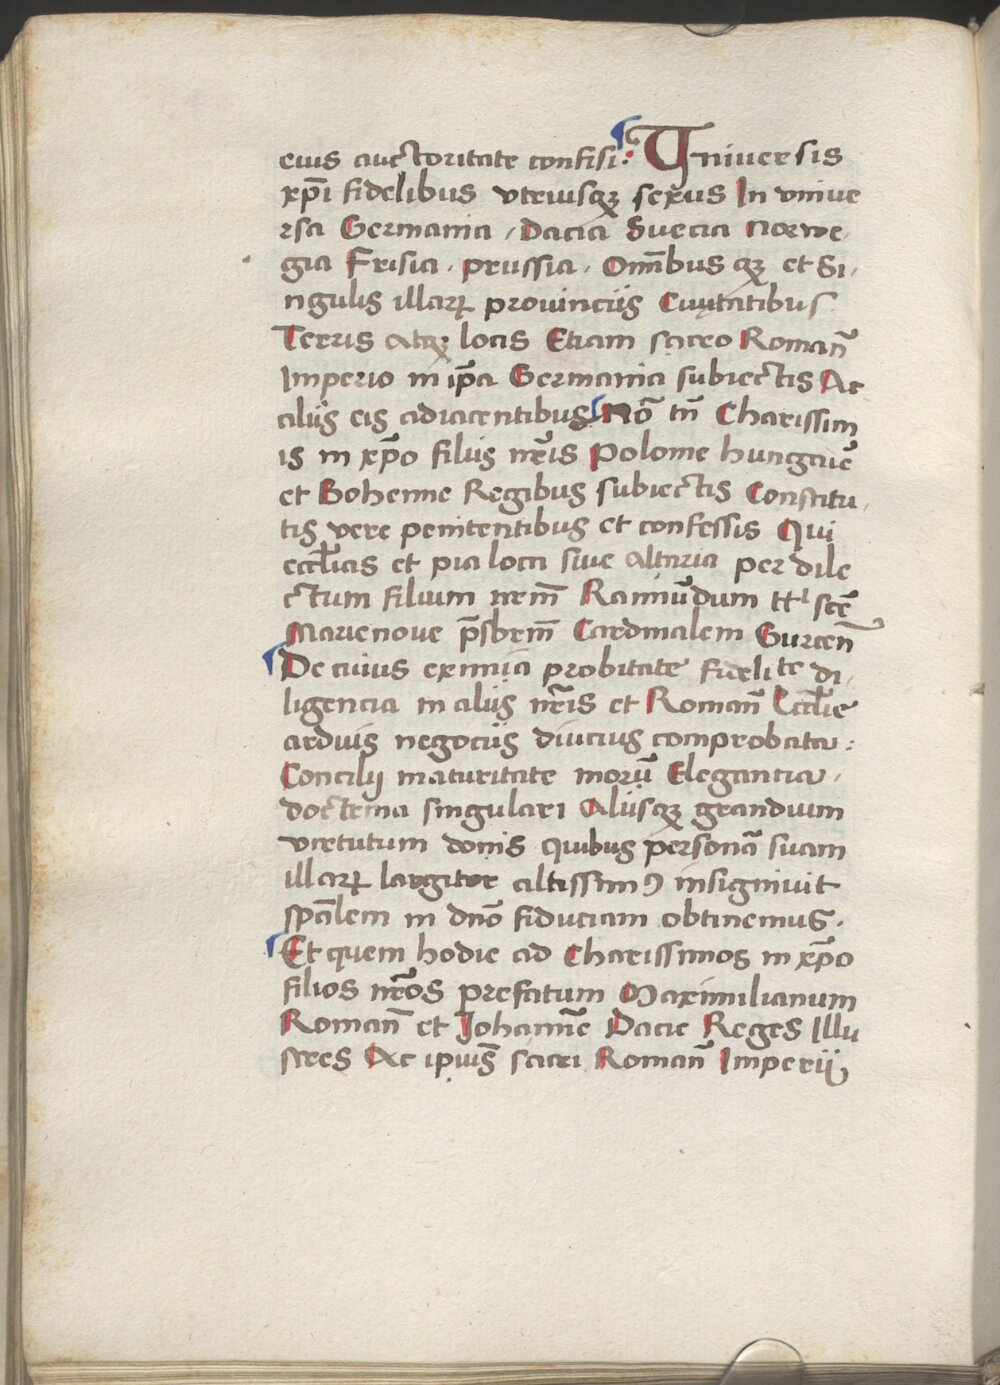 eius auctoritate confisi: Vniuersis
xp̄i fidelibus vtriusqꝫ sexus In vniue
rsa Germania, Dacia Suecia Norwe,
gia Frisia, prussia, Om̄ibus qꝫ et Si,
ngulis illaꝝ prouinciis Ciuitatibus
Terris atqꝫ locis Etiam sacro Roman̄
Imperio in ip̄a Germania subiectis Ac
aliis eis adiacentibus Nō tn̄ Charissim
is in xp̄o filiis nr̄is Polonie hungarie
et Bohemie Regibus subiectis Constitu,
tis vere penitentibus et confessis Qui
eccl̄ias et pia loca siue altaria per dile
ctum filium nr̄m Raimūdum tt̄ sc̄e
Marie noue p̄sbr̄m Cardinalem Gurcen̄
De cuius eximia probitate fidelitete di,
ligencia in aliis nr̄is et Roman̄ Eccl̄ie
arduis negociis diucius comprobata:
Concilij maturitate morū Elegantia,
doctrina singulari Aliisqꝫ grandium
virtutum donis quibus personā suam
illaꝝ largitor altissimꝰ insigniuit
sp̄alem in dn̄o fiduciam obtinemus.
Et quem hodie ad Charissimos in xp̄o
filios nr̄os prefatum Maximilianum
Roman̄ et Johannē Dacie Reges Illu
stres Ac ipius̄ sacri Roman̄ Imperij